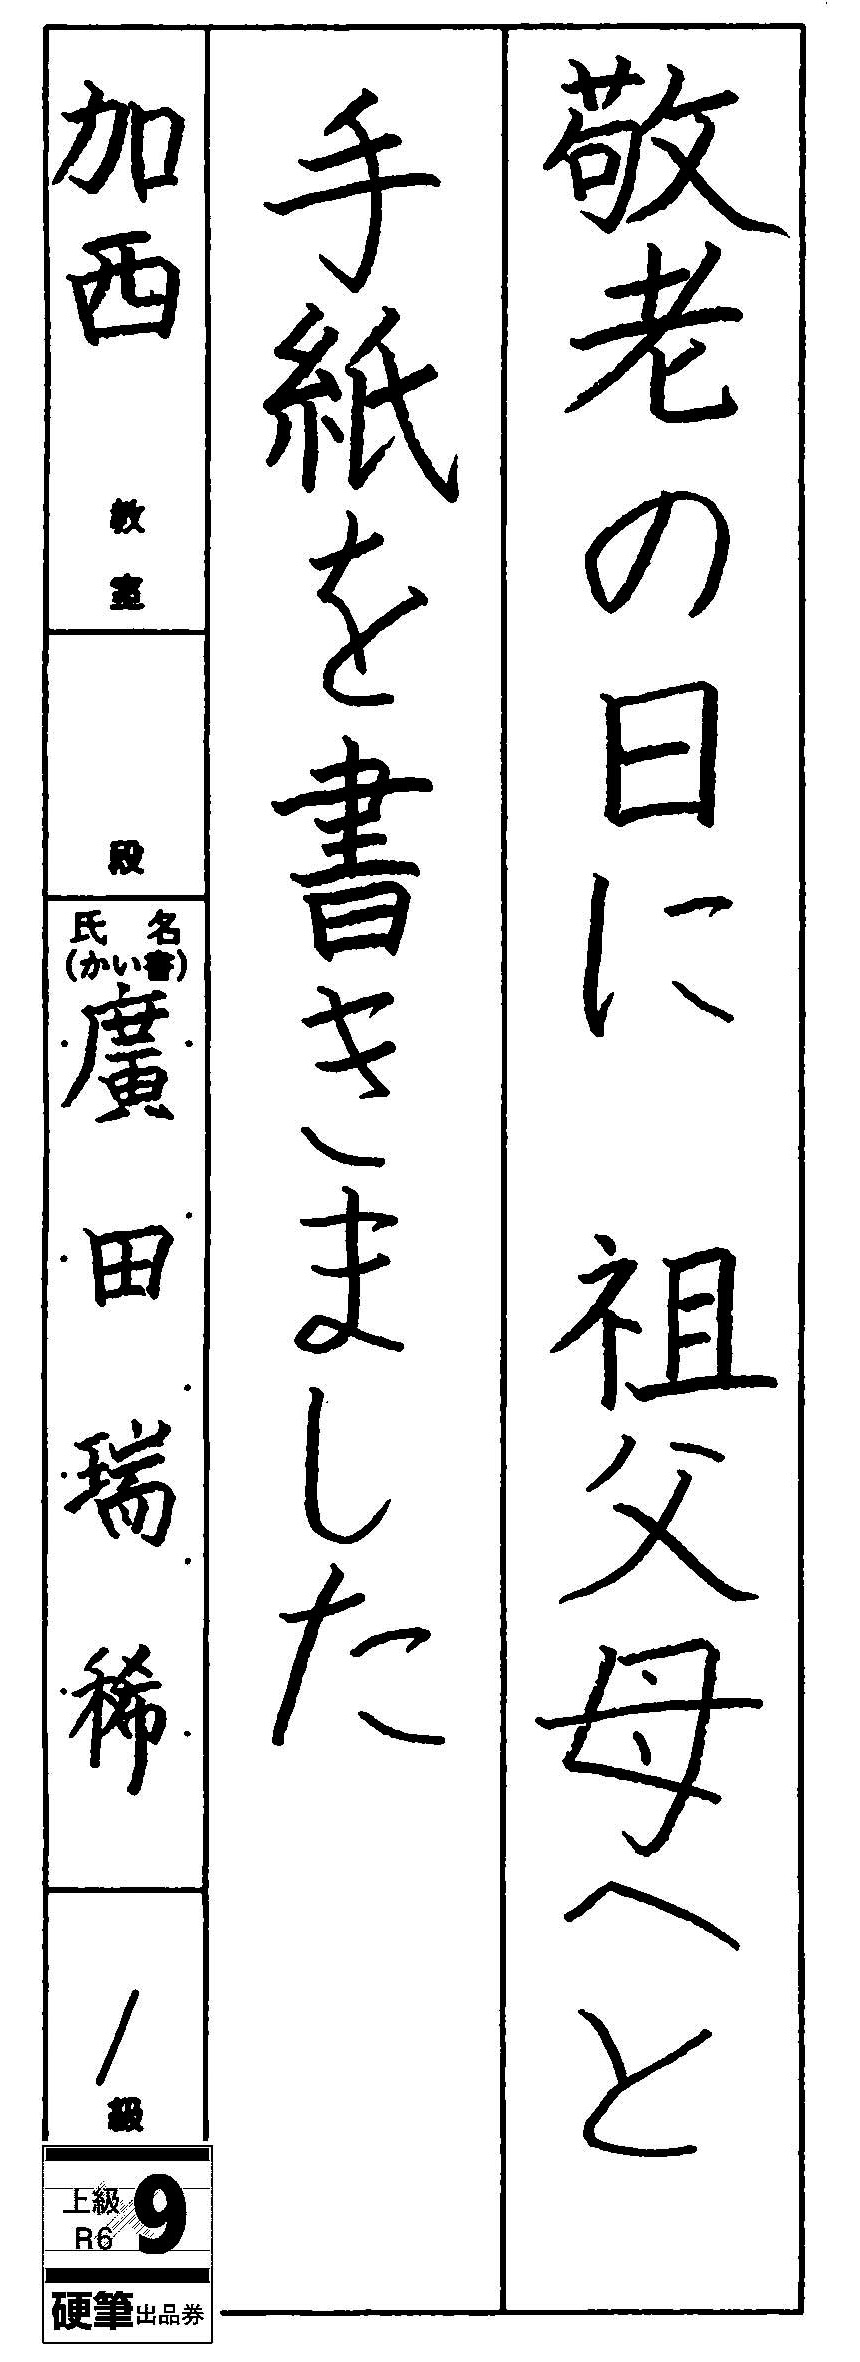 敬老の日に 祖父母へと
手紙を書きました
加西 教室
段
氏名
(かい書)
廣田瑞稀
／級
上級 9
R6
硬筆出品券